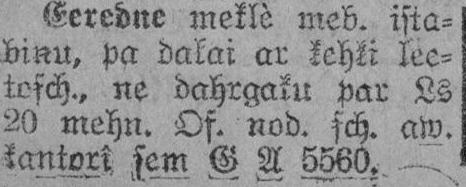 Eeredne meklè meb. ista-
binu, pa dakai ar kehki lee-
tosch., ne dahrgaku par Ls
20 mehn. Of. nod. sch. aw.
kantorî sem G A 5560.